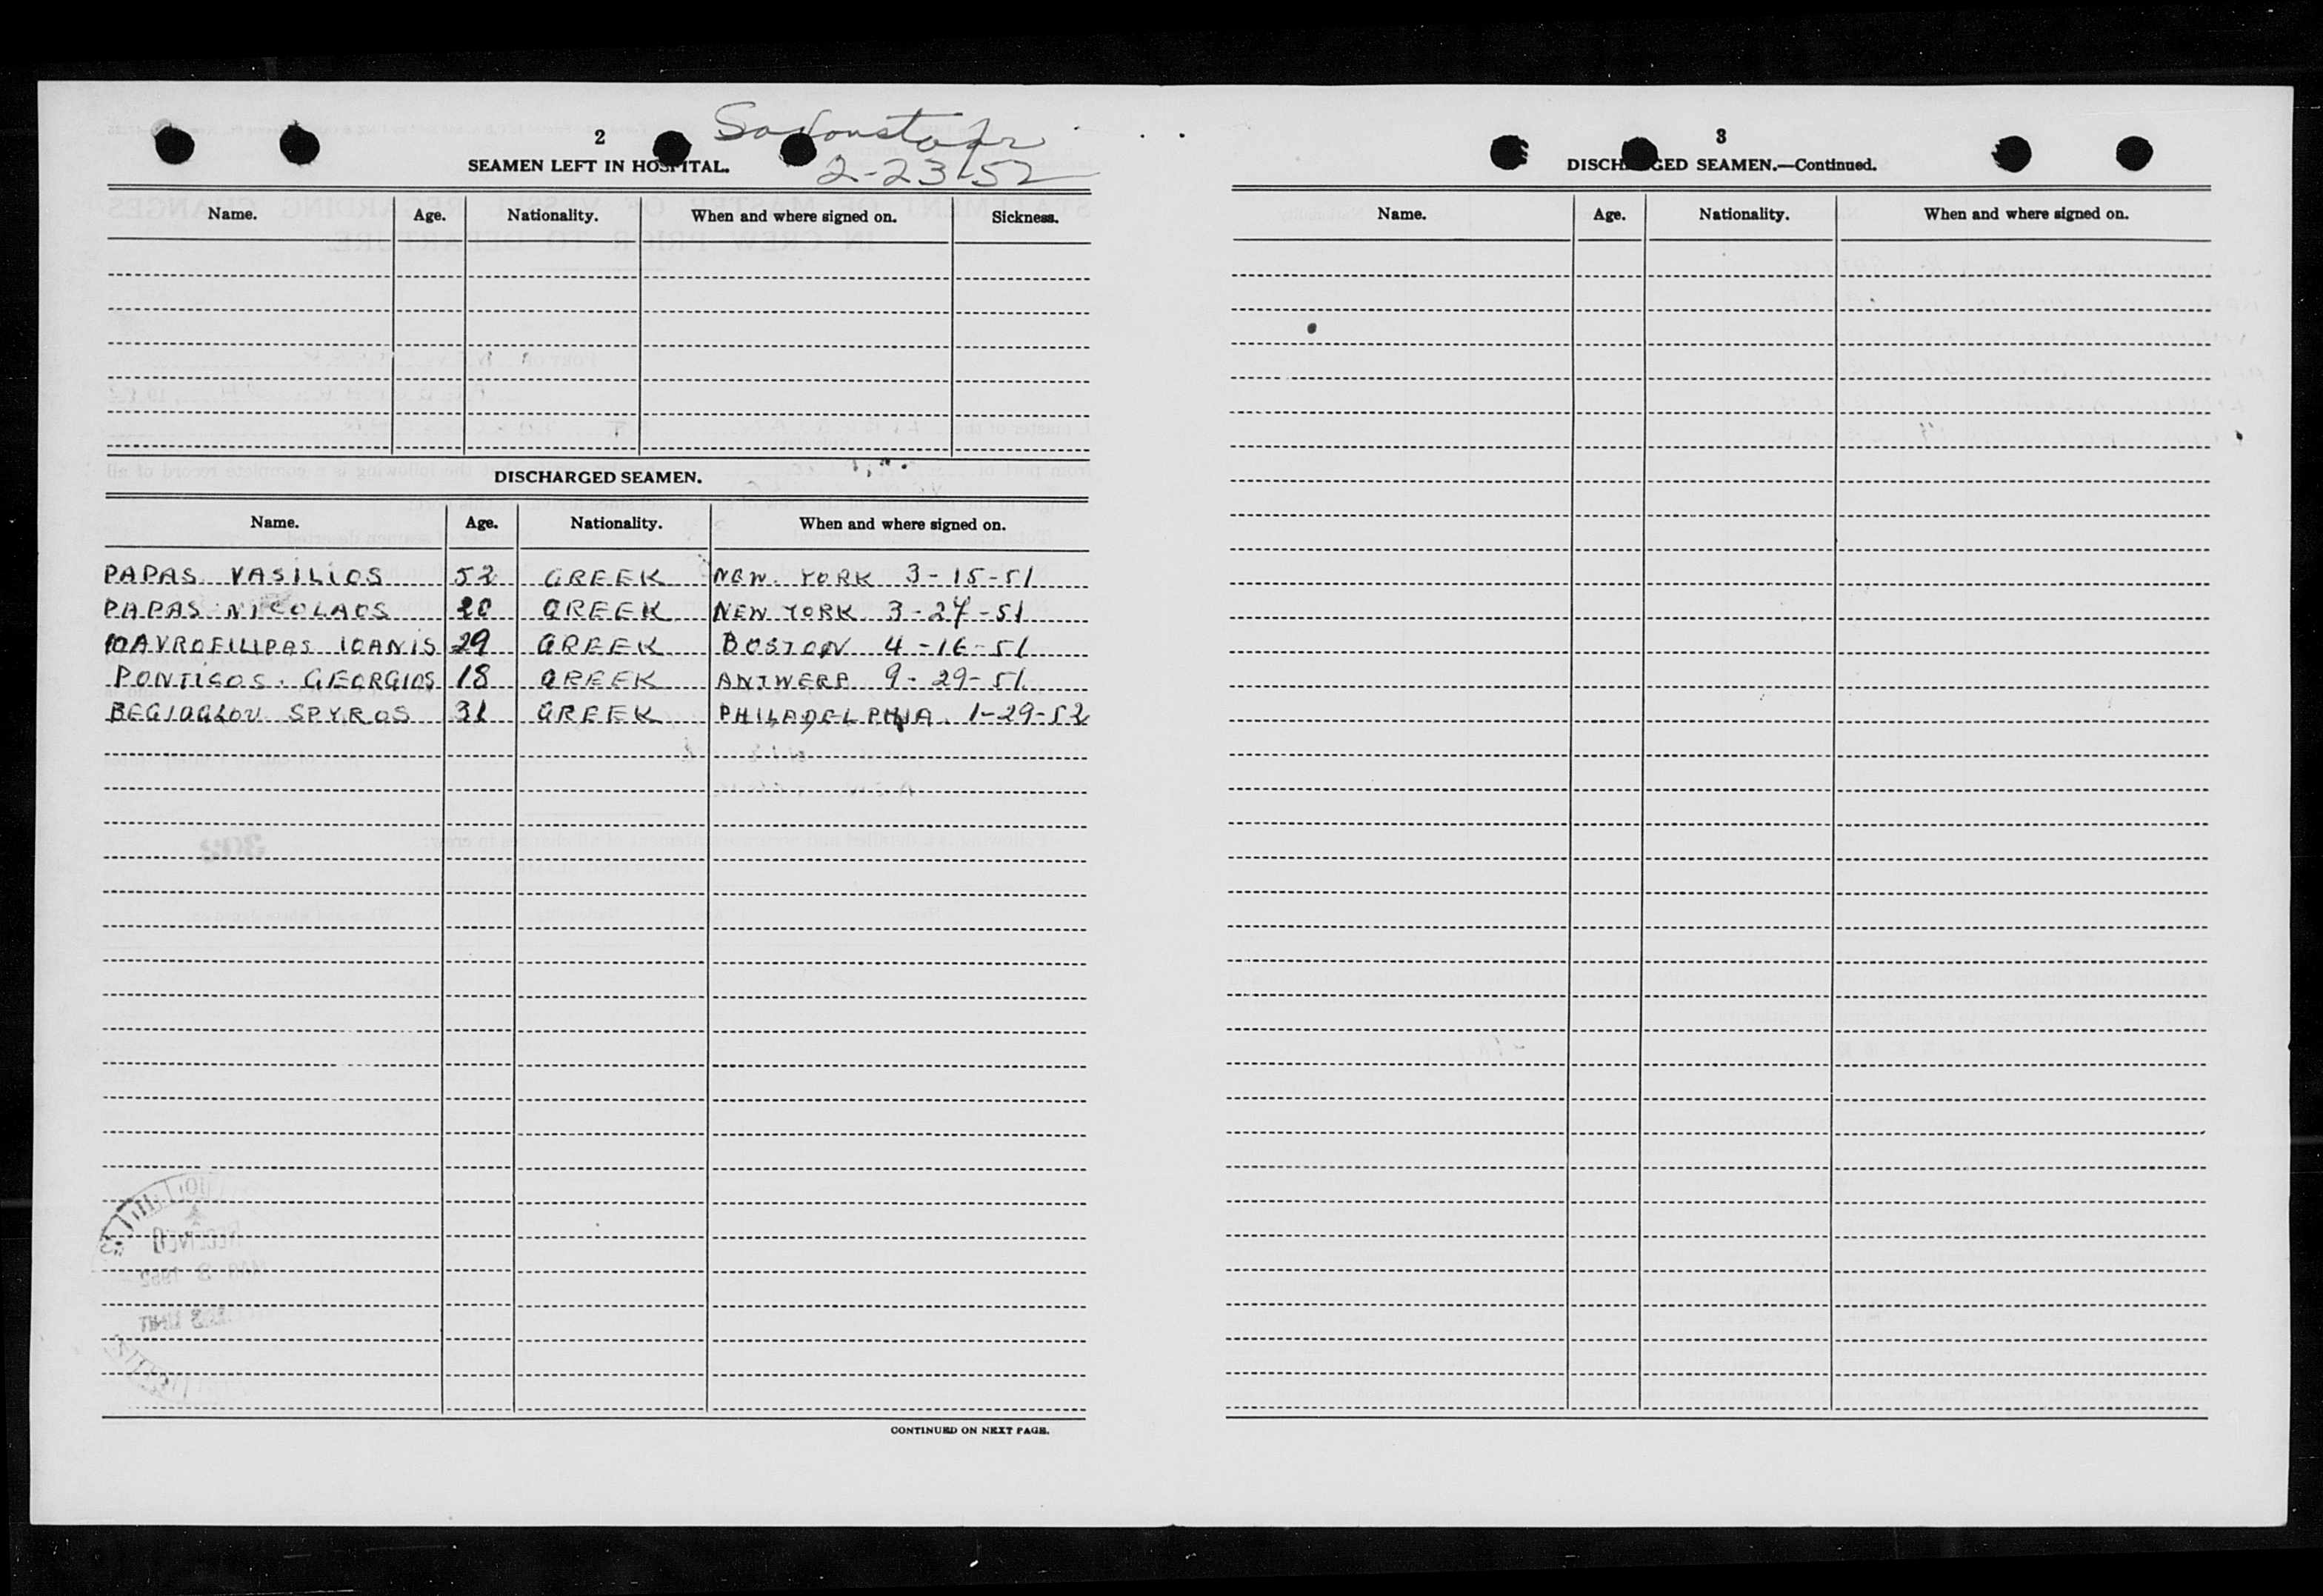 2
SEAMEN LEFT IN HOSPITAL.
2-23-52
Name. Age. Nationality. When and where signed on. Sickness.
DISCHARGED SEAMEN.
Name. Age. Nationality. When and where signed on.
PAPAS VASILIOS 52 GREEK NEW YORK 3-15-51
PAPAS NICOLAOS 20 GREEK NEW YORK 3-27-51
MAVROFILIPAS IOANIS 29 GREEK BOSTON 4-16-51
PONTICOS GEORGIOS 18 GREEK ANTWERP 9-29-51
BEGIOGLOU SPYROS 31 GREEK PHILADELPHIA 1-29-52
CONTINUED ON NEXT PAGE.
3
DISCHARGED SEAMEN.—Continued.
Name. Age. Nationality. When and where signed on.